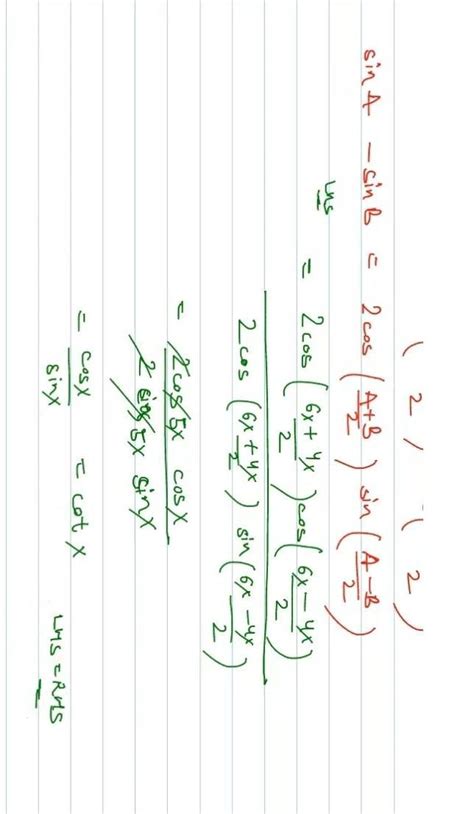 ( 2 ) ( 2 )
sin A - sin B = 2 cos (A+B/2) sin (A-B/2)
LHS = 2 cos (6x+4x/2) cos (6x-4x/2) / 2 cos (6x+4x/2) sin (6x-4x/2)
= 2 cos 5x cos x / 2 cos 5x sin x
= cos x / sin x = cot x
LHS = RHS